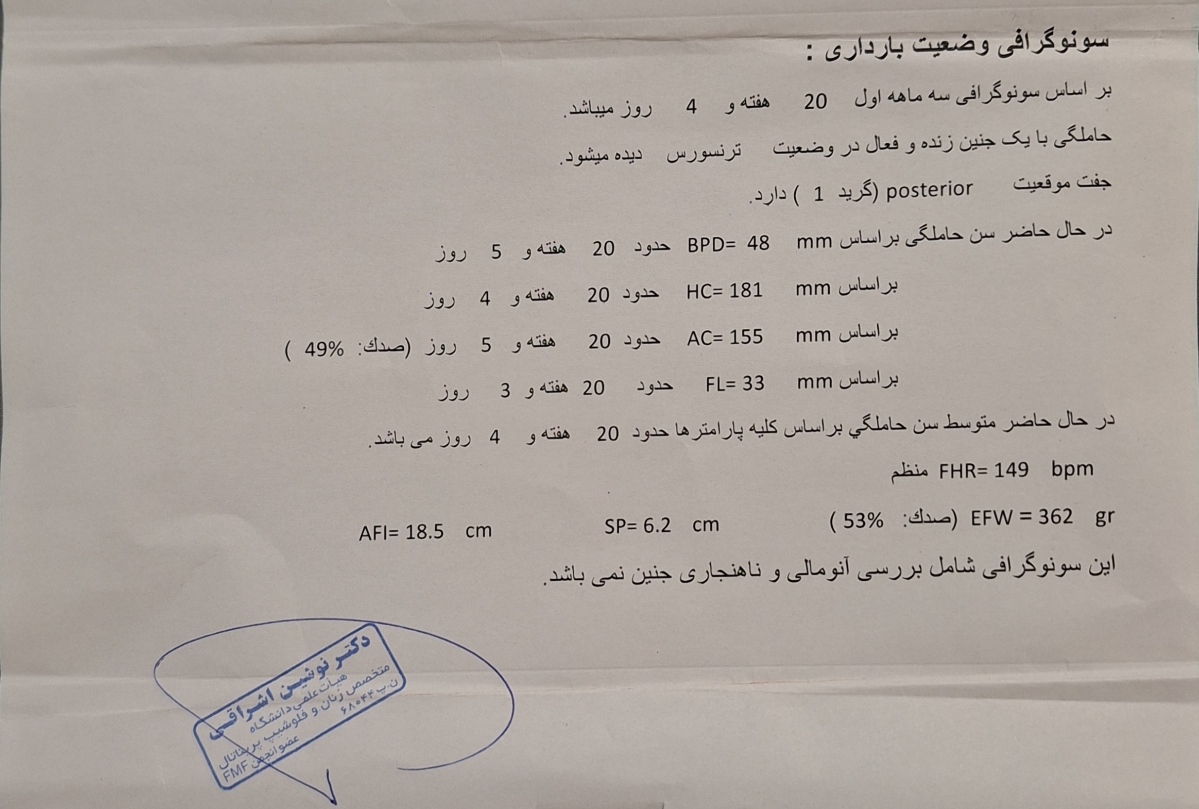 سونوگرافی وضعیت بارداری :
بر اساس سونوگرافی سه ماهه اول 20 هفته و 4 روز میباشد.
حاملگی با یک جنین زنده و فعال در وضعیت ترنسورس دیده میشود.
جفت موقعیت posterior (گرید 1 ) دارد.
در حال حاضر سن حاملگی براساس BPD= 48 mm حدود 20 هفته و 5 روز
براساس HC= 181 mm حدود 20 هفته و 4 روز
براساس AC= 155 mm حدود 20 هفته و 5 روز (صدك: 49% )
براساس FL= 33 mm حدود 20 هفته و 3 روز
در حال حاضر متوسط سن حاملگي براساس كليه پارامترها حدود 20 هفته و 4 روز می باشد.
FHR= 149 bpm منظم
EFW = 362 gr (صدك: 53% ) SP= 6.2 cm AFI= 18.5 cm
این سونوگرافی شامل بررسی آنومالی و ناهنجاری جنین نمی باشد.
دکتر نوشین اشراقی
هیات علمی دانشگاه
متخصص زنان و فلوشیپ پریناتال
ن.پ ۶۸۰۴۴
عضو انجمن FMF